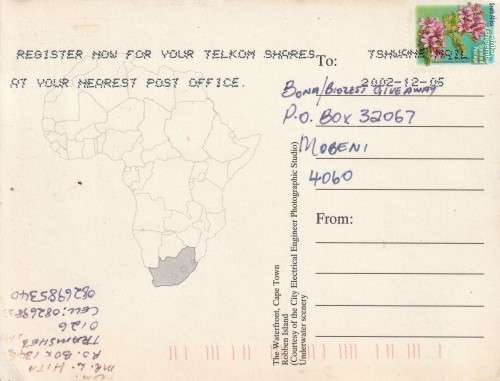 REGISTER NOW FOR YOUR TELKOM SHARES
AT YOUR NEAREST POST OFFICE.
TSHWANE MAIL
2002-12-05
To:
BONA/BIOZEST GIVEAWAY
P.O. BOX 32067
MOBENI
4060
From:
The Waterfront, Cape Town
Robben Island
(Courtesy of the City Electrical Engineer Photographic Studio)
Underwater scenery
MR. L.
P.O. BOX
TRAMSHED
0126
CELL:
0826985340